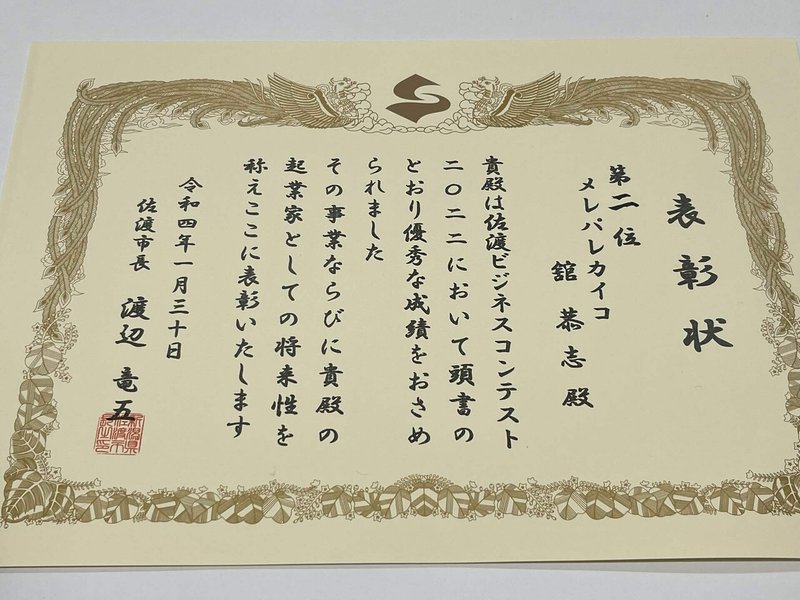 表彰状
第二位
メレパレカイコ
舘恭志殿
貴殿は佐渡ビジネスコンテスト
二〇二二において頭書の
とおり優秀な成績をおさめ
られました
その事業ならびに貴殿の
起業家としての将来性を
称えここに表彰いたします
令和四年一月三十日
佐渡市長 渡辺竜五